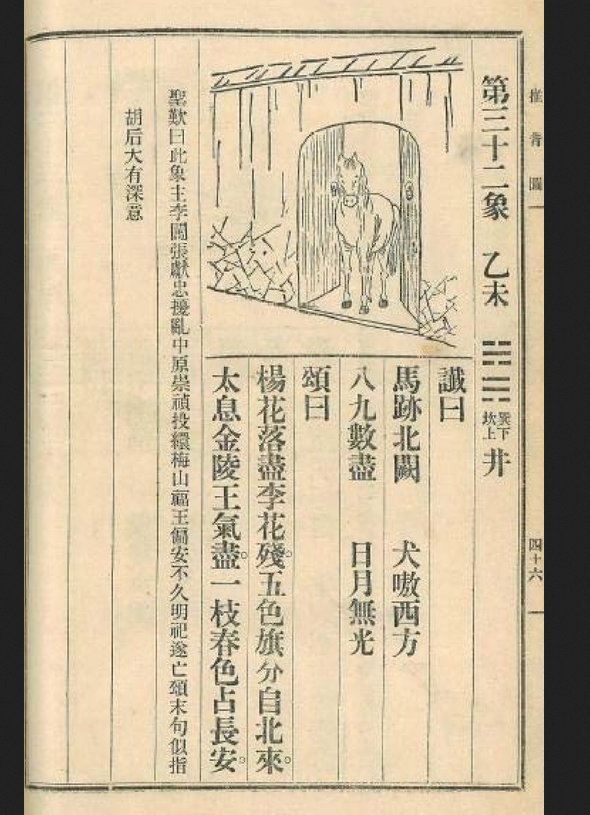 推背圖
四十六
第三十二象 乙未 ䷯ 巽下 坎上 井
讖曰
馬跳北闕 犬嗷西方
八九數盡 日月無光
頌曰
楊花落盡李花殘。五色旗分自北來。
太息金陵王氣盡。一枝春色占長安。
聖歎曰此象主李闖張獻忠擾亂中原崇禎投繯梅山福王偏安不久明祀遂亡頌末句似指
胡后大有深意